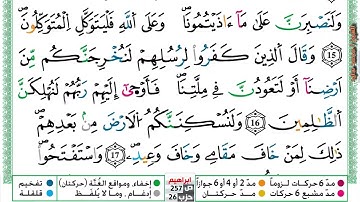 وَلَنَصْبِرَنَّ عَلَىٰ مَآ ءَاذَيْتُمُونَا وَعَلَى ٱللَّهِ فَلْيَتَوَكَّلِ ٱلْمُتَوَكِّلُونَ
١٥ وَقَالَ ٱلَّذِينَ كَفَرُوا۟ لِرُسُلِهِمْ لَنُخْرِجَنَّكُم مِّنْ
أَرْضِنَآ أَوْ لَتَعُودُنَّ فِى مِلَّتِنَا فَأَوْحَىٰٓ إِلَيْهِمْ رَبُّهُمْ لَنُهْلِكَنَّ
ٱلظَّٰلِمِينَ ١٦ وَلَنُسْكِنَنَّكُمُ ٱلْأَرْضَ مِنۢ بَعْدِهِمْ
ذَٰلِكَ لِمَنْ خَافَ مَقَامِى وَخَافَ وَعِيدِ ١٧ وَٱسْتَفْتَحُوا۟
مدّ 6 حركات لزوماً مدّ 2 أو 4 أو 6 جوازاً ابراهيم إخفاء، ومواقع الغُنَّة (حركتان) تفخيم
مدّ مشبع 6 حركات مدّ حركتان ص 257 حزب 26 إدغام، وما لا يُلفَظ قلقلة